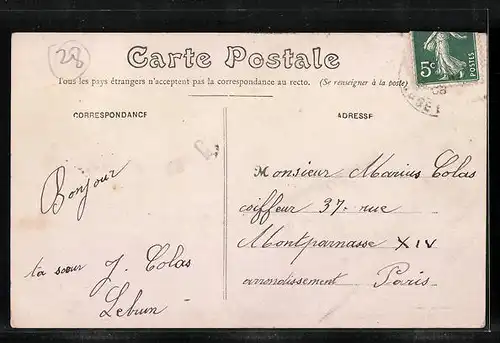 28
Carte Postale
Tous les pays étrangers n'acceptent pas la correspondance au recto. (Se renseigner à la poste)
CORRESPONDANCE
Bonjour
ta soeur J. Colas
Lebrun
ADRESSE
Monsieur Marius Colas
coiffeur 37 rue
Montparnasse XIV
arrondissement Paris
5c
POSTES
08